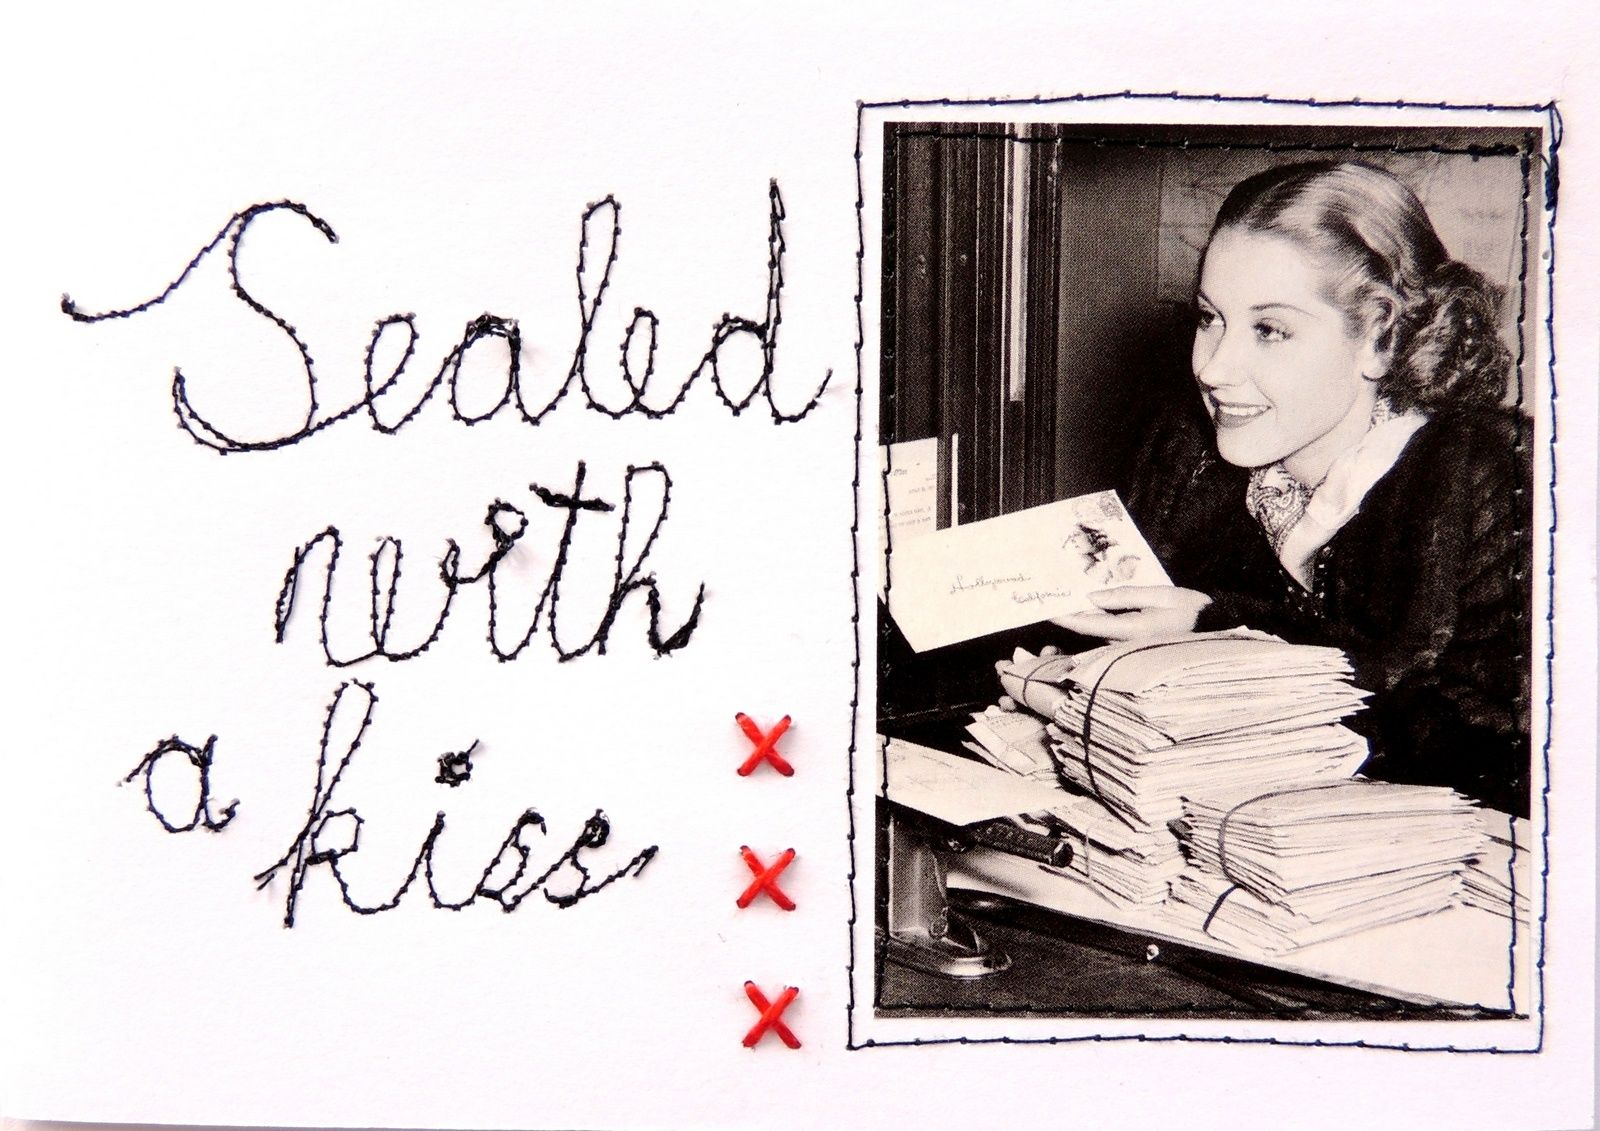 Sealed
with
a kiss
x
x
x
Hollywood
California